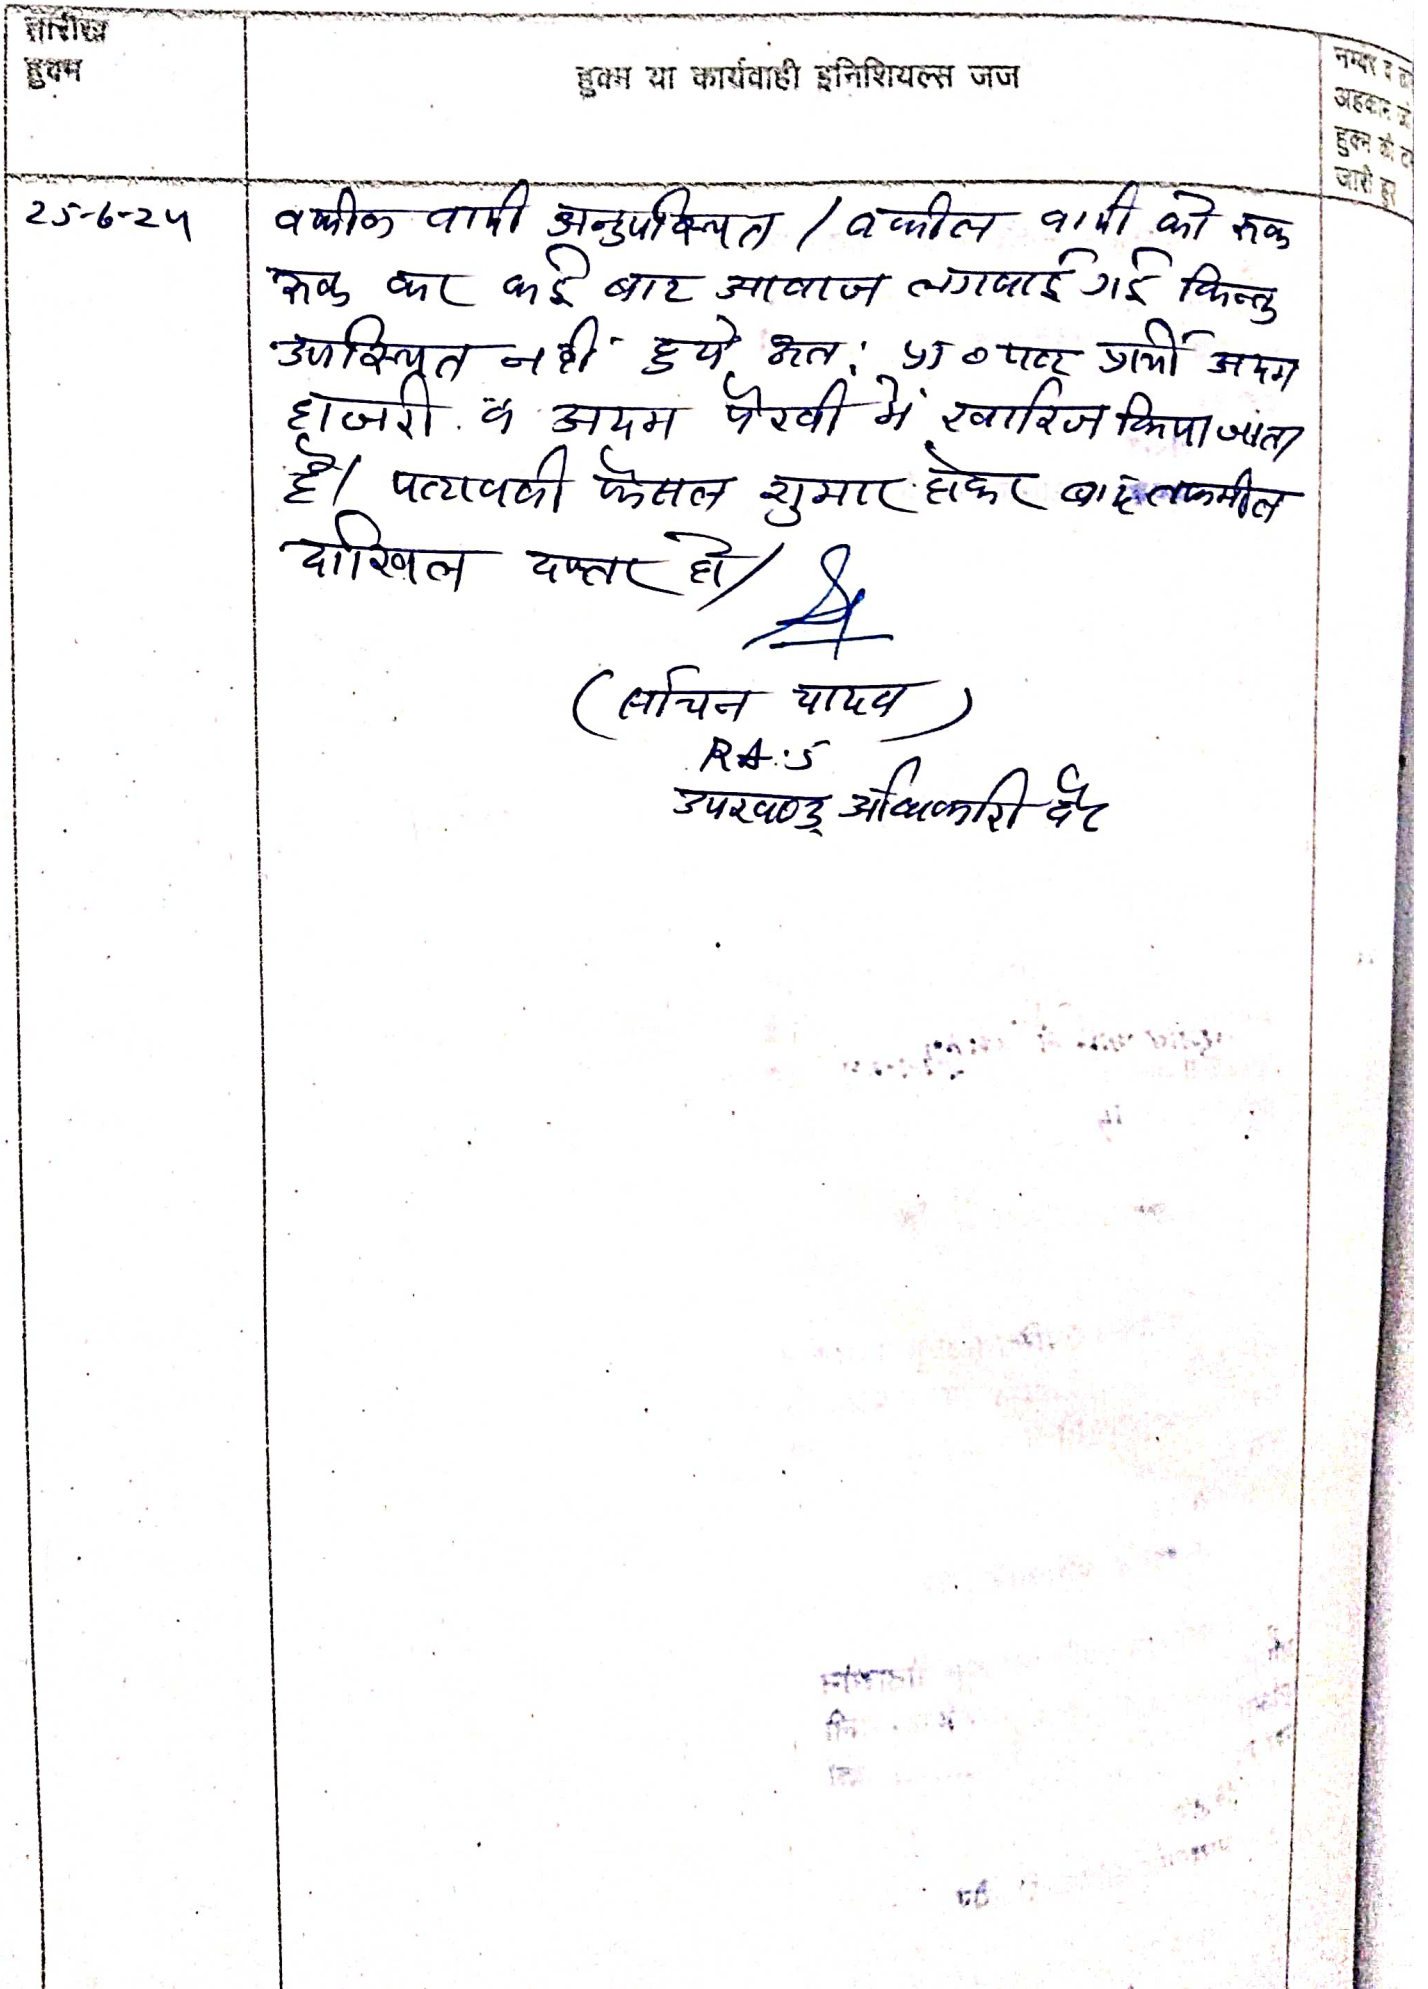 तारीख
हुक्म
हुक्म या कार्यवाही इनिशियल्स जज
नम्बर व
अहकाम जो
हुक्म की
जारी हुए
25-6-24
वकील वादी अनुपस्थित / वकील वादी को रूक
रूक कर कई बार आवाज लगवाई गई किन्तु
उपस्थित नहीं हुये अतः प्रा० पत्र प्रार्थी अदम
हाजरी व अदम पैरवी में खारिज किया जाता
है/ पत्रावली फैसल शुमार होकर बाद तकमील
दाखिल दफ्तर हो/
(सचिन यादव)
R.A.S
उपखण्ड अधिकारी वैर